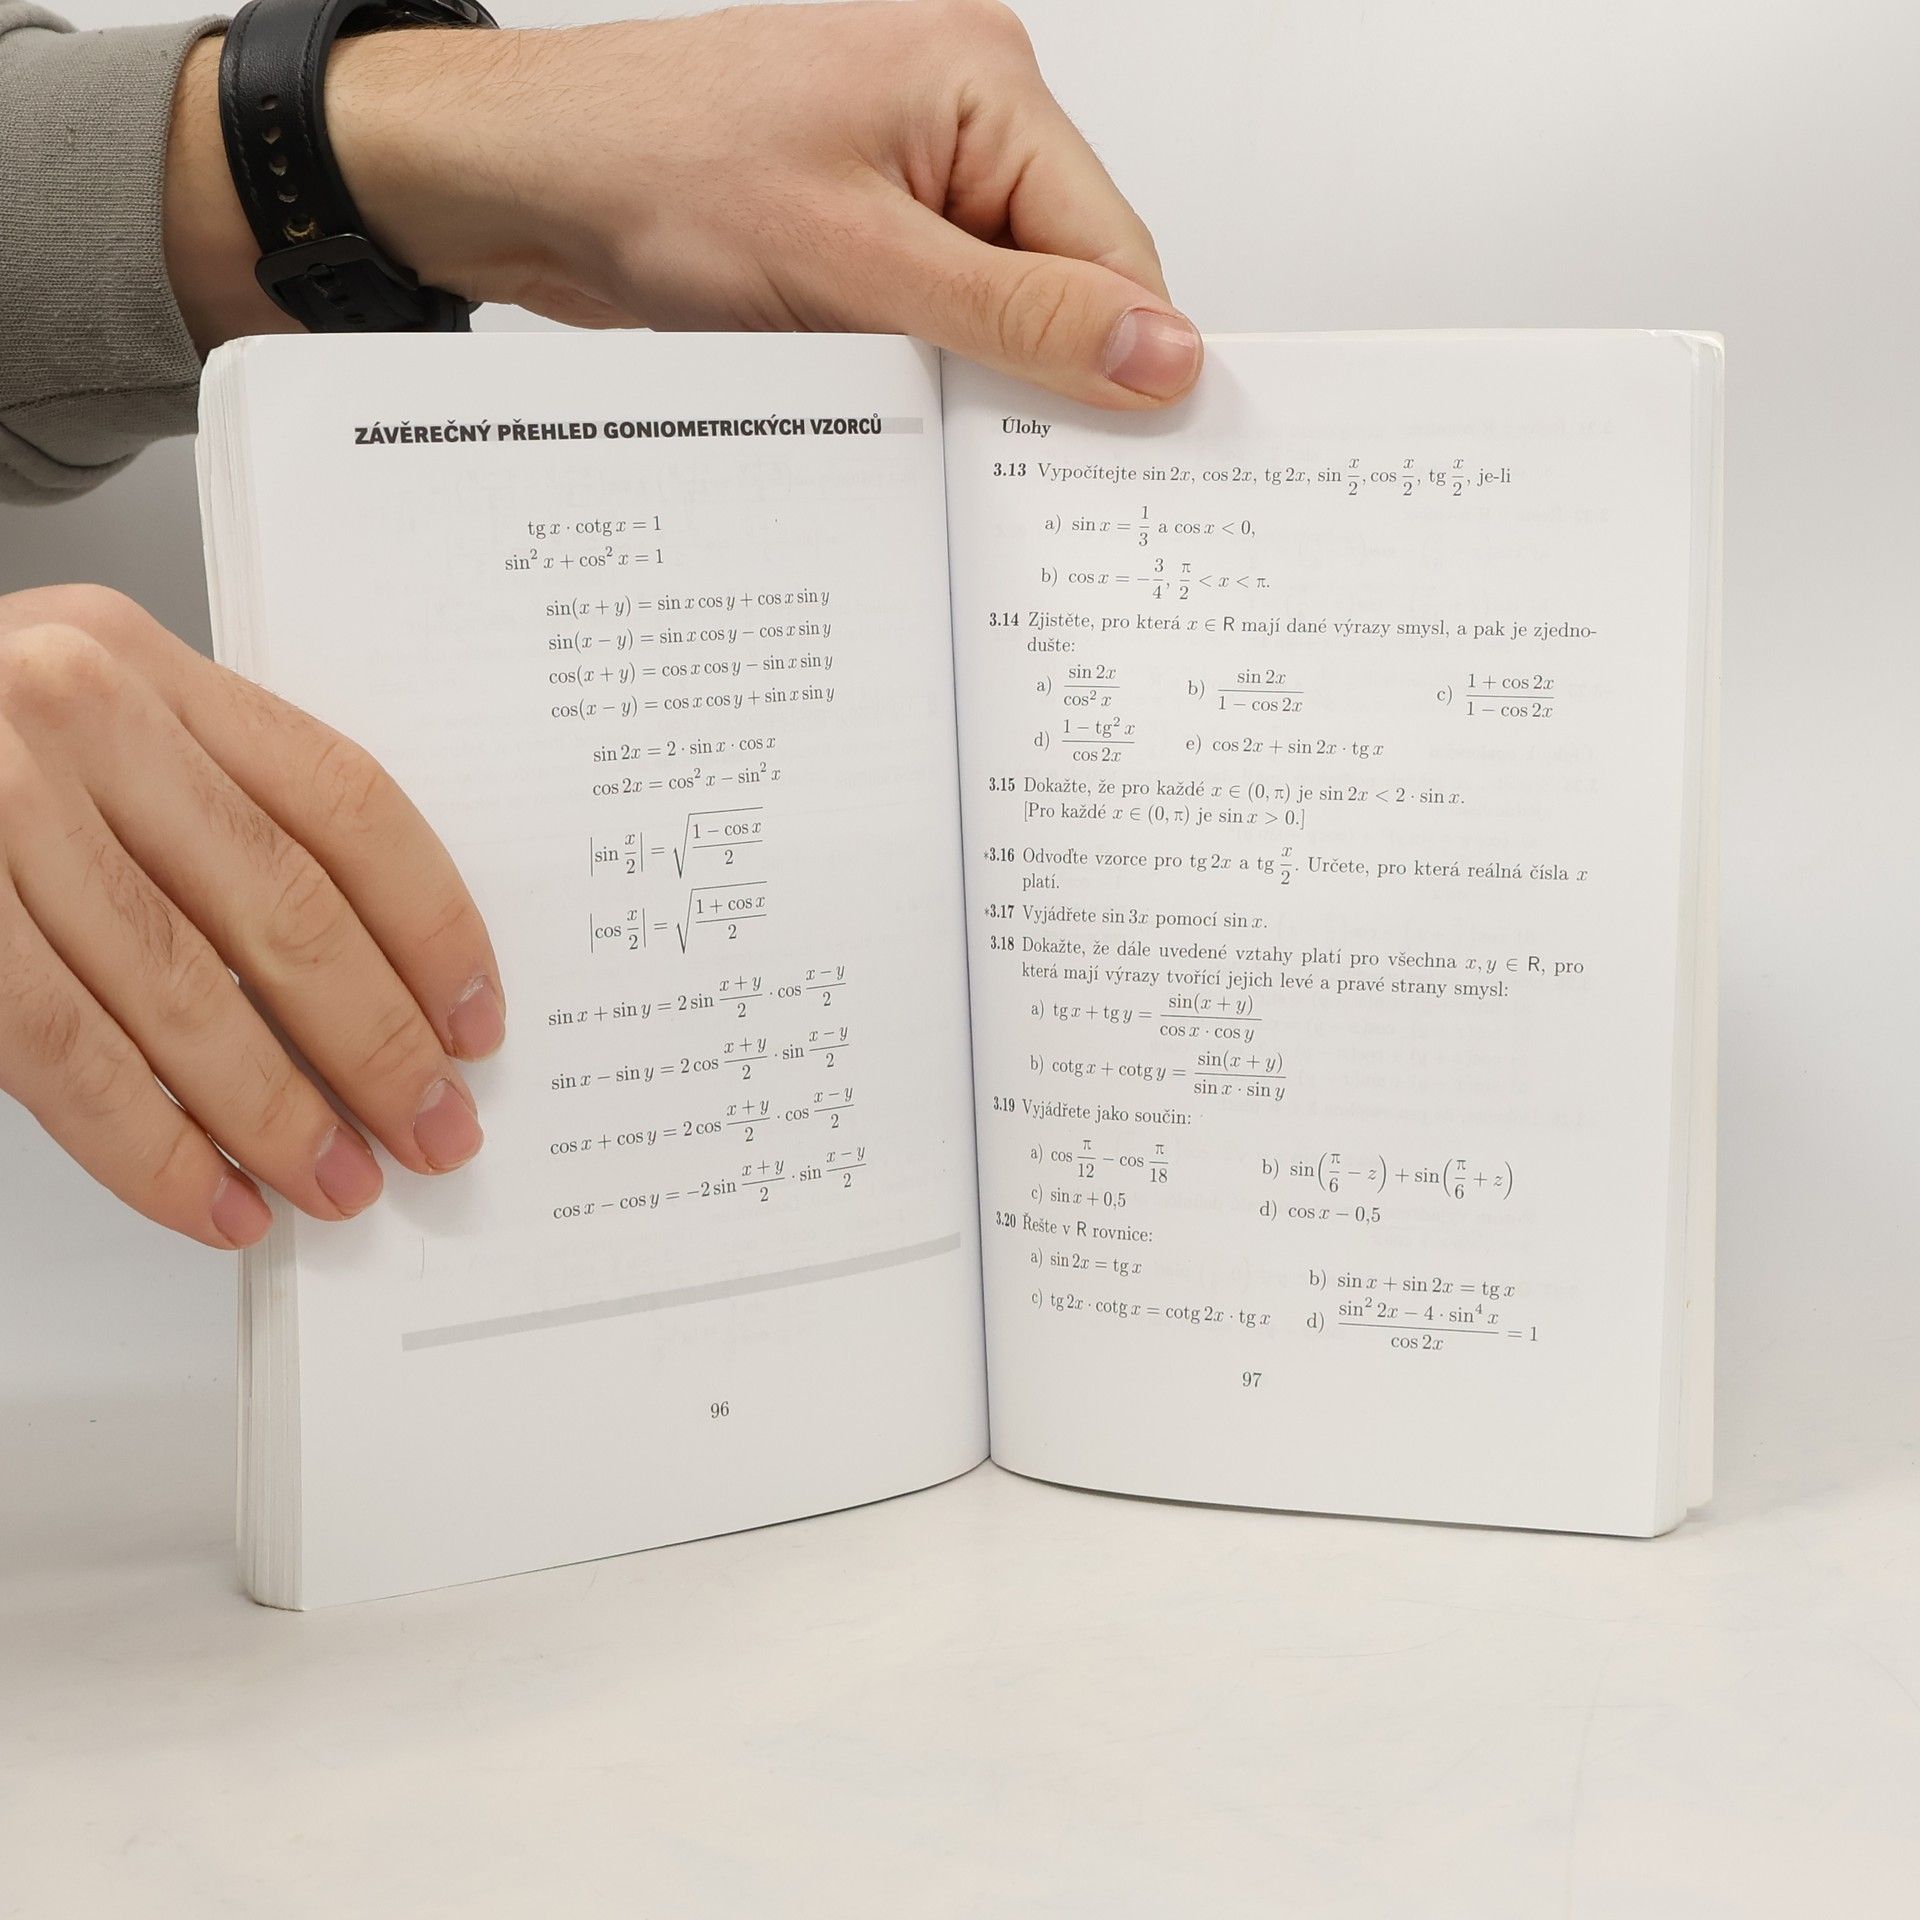 ZÁVĚREČNÝ PŘEHLED GONIOMETRICKÝCH VZORCŮ
tg x · cotg x = 1
sin² x + cos² x = 1
sin(x + y) = sin x cos y + cos x sin y
sin(x − y) = sin x cos y − cos x sin y
cos(x + y) = cos x cos y − sin x sin y
cos(x − y) = cos x cos y + sin x sin y
sin 2x = 2 · sin x · cos x
cos 2x = cos² x − sin² x
|sin x/2| = √((1 − cos x)/2)
|cos x/2| = √((1 + cos x)/2)
sin x + sin y = 2 sin (x + y)/2 · cos (x − y)/2
sin x − sin y = 2 cos (x + y)/2 · sin (x − y)/2
cos x + cos y = 2 cos (x + y)/2 · cos (x − y)/2
cos x − cos y = −2 sin (x + y)/2 · sin (x − y)/2
96
Úlohy
3.13 Vypočítejte sin 2x, cos 2x, tg 2x, sin x/2, cos x/2, tg x/2, je-li
a) sin x = 1/3 a cos x < 0,
b) cos x = −3/4, π/2 < x < π.
3.14 Zjistěte, pro která x ∈ R mají dané výrazy smysl, a pak je zjedno-
dušte:
a) sin 2x/cos² x b) sin 2x/(1 − cos 2x) c) (1 + cos 2x)/(1 − cos 2x)
d) (1 − tg² x)/cos 2x e) cos 2x + sin 2x · tg x
3.15 Dokažte, že pro každé x ∈ (0, π) je sin 2x < 2 · sin x.
[Pro každé x ∈ (0, π) je sin x > 0.]
*3.16 Odvoďte vzorce pro tg 2x a tg x/2. Určete, pro která reálná čísla x
platí.
*3.17 Vyjádřete sin 3x pomocí sin x.
3.18 Dokažte, že dále uvedené vztahy platí pro všechna x, y ∈ R, pro
která mají výrazy tvořící jejich levé a pravé strany smysl:
a) tg x + tg y = sin(x + y)/(cos x · cos y)
b) cotg x + cotg y = sin(x + y)/(sin x · sin y)
3.19 Vyjádřete jako součin:
a) cos π/12 − cos π/18 b) sin(π/6 − z) + sin(π/6 + z)
c) sin x + 0,5 d) cos x − 0,5
3.20 Řešte v R rovnice:
a) sin 2x = tg x b) sin x + sin 2x = tg x
c) tg 2x · cotg x = cotg 2x · tg x d) (sin² 2x − 4 · sin⁴ x)/cos 2x = 1
97